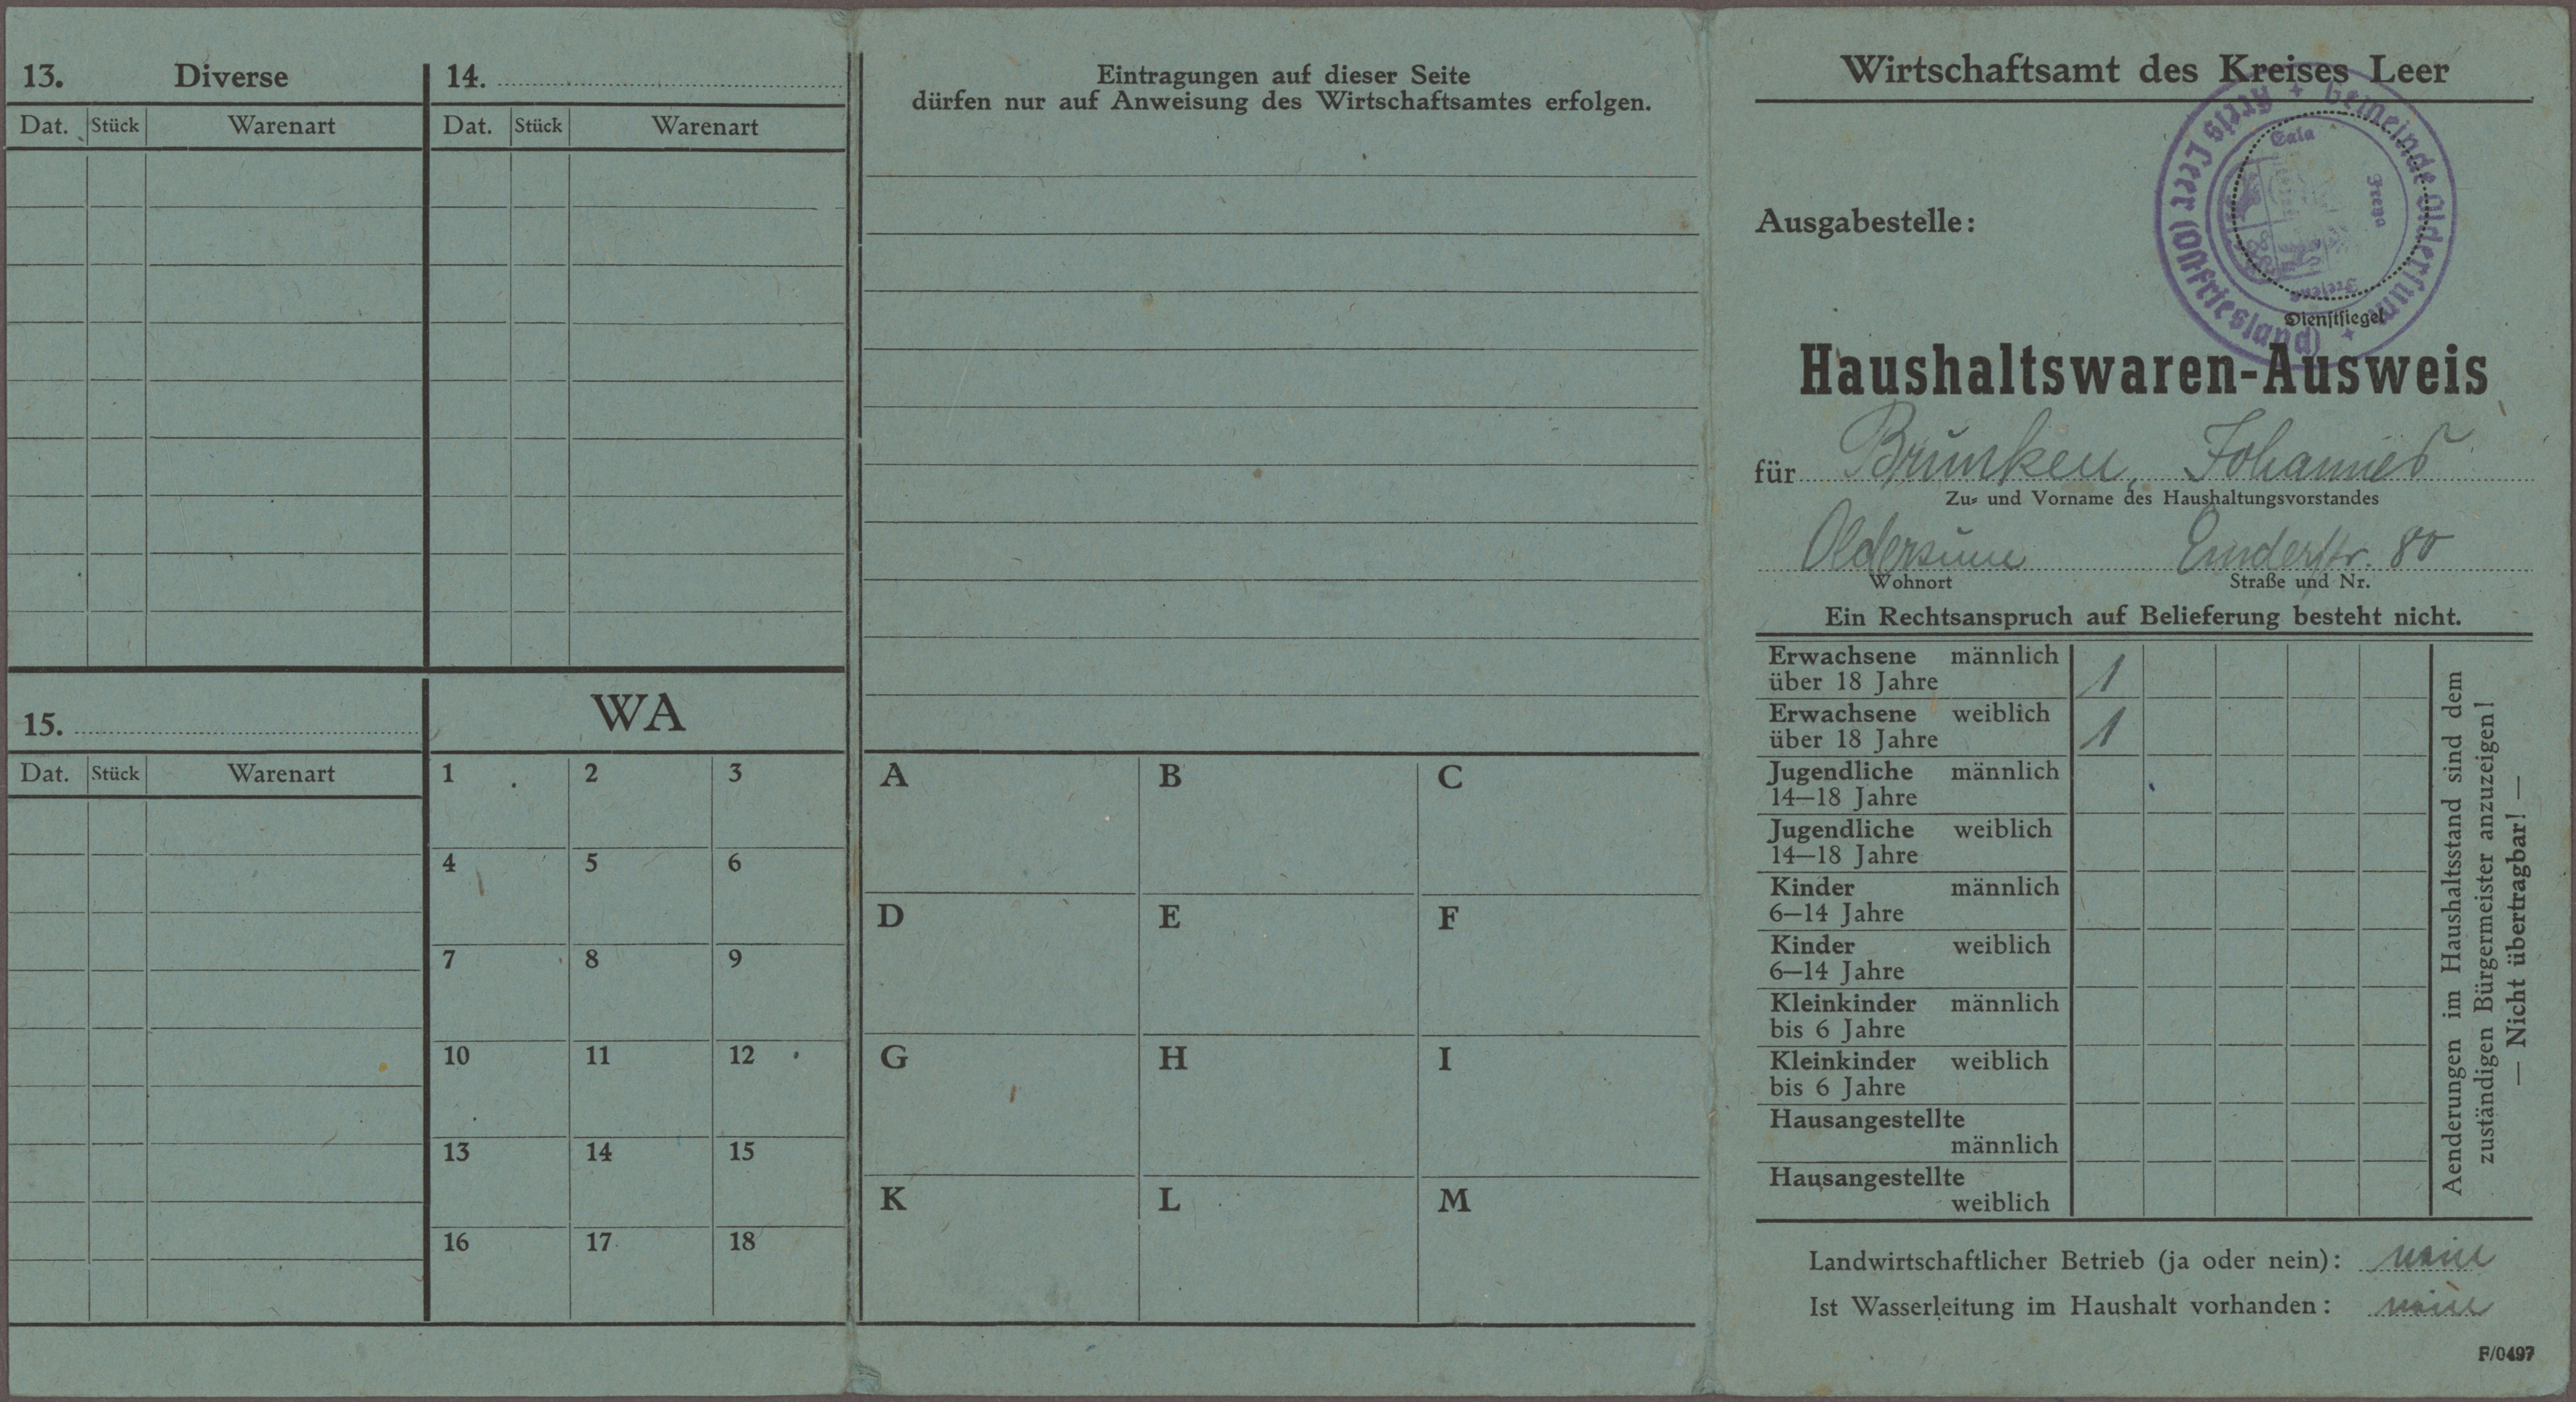 13. Diverse
Dat. Stück Warenart
14.
Dat. Stück Warenart
15.
Dat. Stück Warenart
WA
1 2 3
4 5 6
7 8 9
10 11 12
13 14 15
16 17 18
Eintragungen auf dieser Seite
dürfen nur auf Anweisung des Wirtschaftsamtes erfolgen.
A B C
D E F
G H I
K L M
Wirtschaftsamt des Kreises Leer
Ausgabestelle:
Gemeinde Oldersum
Kreis Leer (Ostfriesland)
Eala
Freya
Fresena
Dienstsiegel
Haushaltswaren-Ausweis
für Brunken, Johannes
Zu- und Vorname des Haushaltungsvorstandes
Oldersum Emderstr. 80
Wohnort Straße und Nr.
Ein Rechtsanspruch auf Belieferung besteht nicht.
Erwachsene männlich
über 18 Jahre 1
Erwachsene weiblich
über 18 Jahre 1
Jugendliche männlich
14—18 Jahre
Jugendliche weiblich
14—18 Jahre
Kinder männlich
6—14 Jahre
Kinder weiblich
6—14 Jahre
Kleinkinder männlich
bis 6 Jahre
Kleinkinder weiblich
bis 6 Jahre
Hausangestellte
männlich
Hausangestellte
weiblich
Aenderungen im Haushaltsstand sind dem
zuständigen Bürgermeister anzuzeigen!
— Nicht übertragbar! —
Landwirtschaftlicher Betrieb (ja oder nein): nein
Ist Wasserleitung im Haushalt vorhanden: nein
F/0497